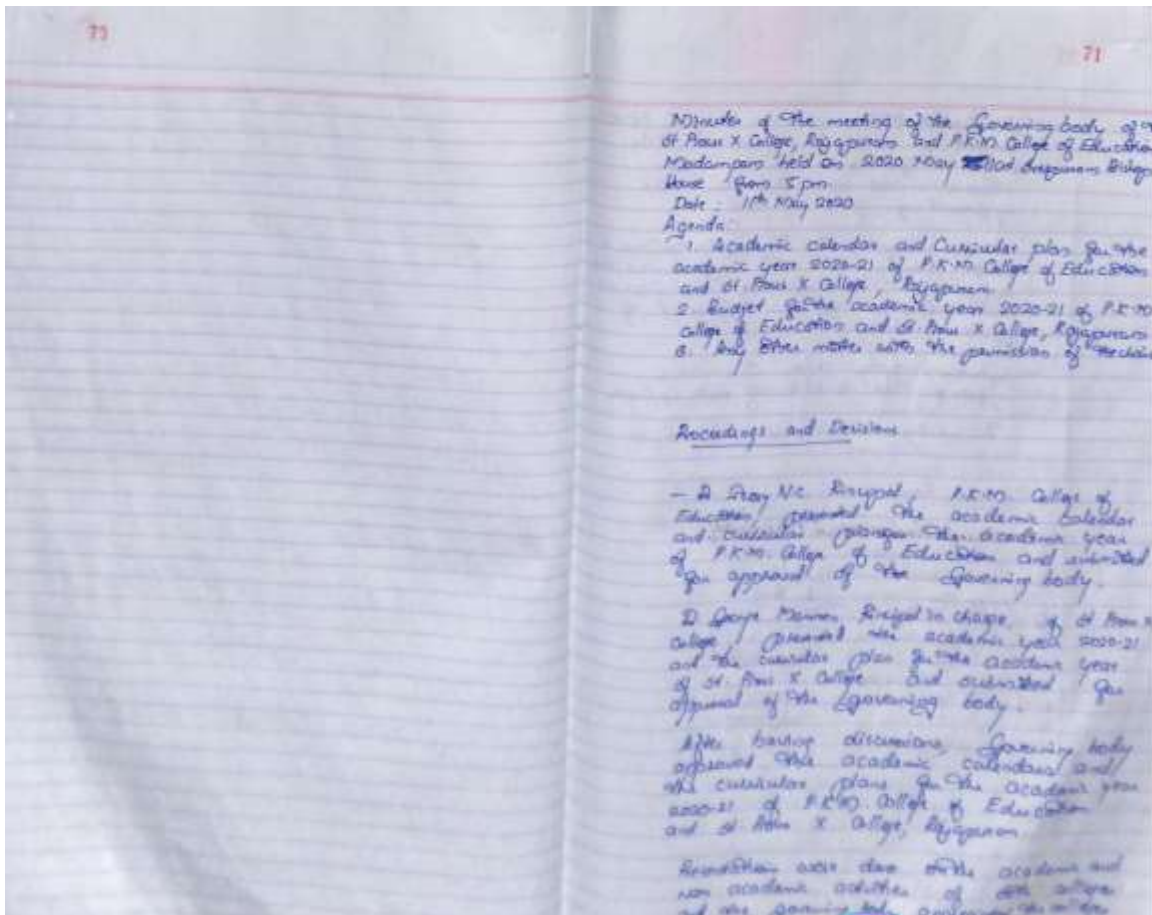 73
71
Minutes of the meeting of the Governing body of
St Pious X College, Rajapuram and P.K.M. College of Education
Madampam held on 2020 May
House from 5 pm
Date : 11th May 2020
Agenda:
1. Academic calendar and Curricular plan for the
academic year 2020-21 of P.K.M. College of Education
and St. Pious X College, Rajapuram
2. Budget for the academic year 2020-21 of P.K.M
College of Education and St Pious X College, Rajapuram
3. Any other matter with the permission of the chair
Proceedings and Decisions
— N.C. Principal, P.K.M. College of
Education, presented the academic calendar
and curricular plan for the academic year
of P.K.M. College of Education and submitted
for approval of the Governing body.
George Principal in charge, of St Pious X
College, presented the academic year 2020-21
and the curricular plan for the academic year
of St. Pious X College and submitted for
approval of the Governing body.
After having discussions, Governing body
approved the academic calendars and
the curricular plans for the academic year
2020-21 of P.K.M. College of Education
and St Pious X College, Rajapuram.
were done on the academic and
non academic activities of
and the governing body